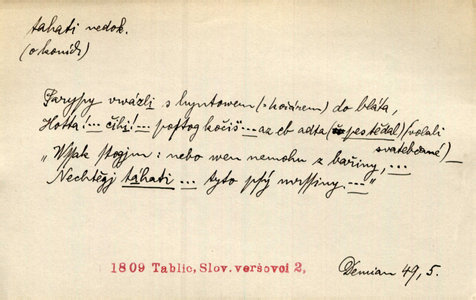 tahati nedok.
(o koních)
Šarypy vwázli s hyntowem (= kočárem) do bláta,
Hotta!... čihi!... pogtog kočiš ... az eb adta (pes těďal) (volali
svatebčané)
„Wssak stogjm: nebo wen nemohu z bařiny, ...
Nechtěgj táhati ... tyto psý mrssiny ..."
1809 Tablic, Slov. veršovci 2,
Demian 49, 5.